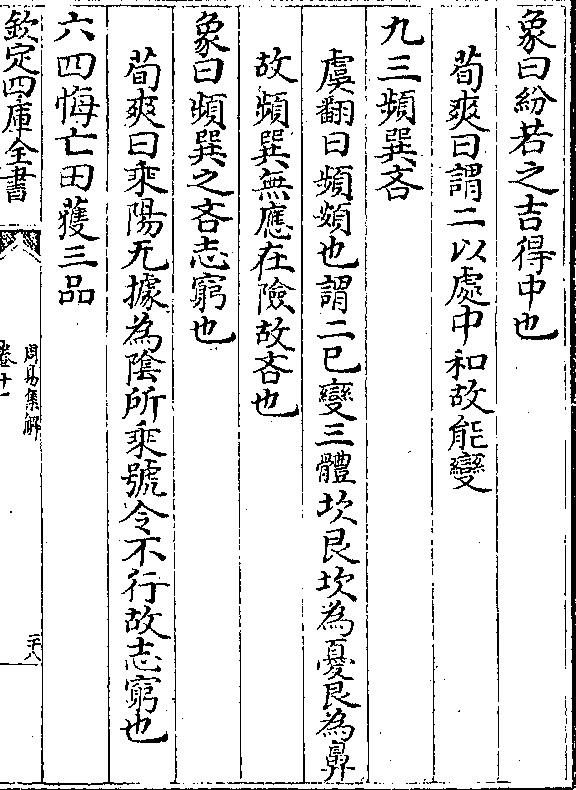 象曰紛若之吉得中也
荀爽曰謂二以處中和故能變
九三頻巽吝
虞翻曰頻頞也謂二已變三體坎艮坎為憂艮為鼻
故頻巽無應在險故吝也
象曰頻巽之吝志窮也
荀爽曰乘陽无據為陰所乘號令不行故志窮也
六四悔亡田獲三品
欽定四庫全書
周易集解
卷十一
二十八